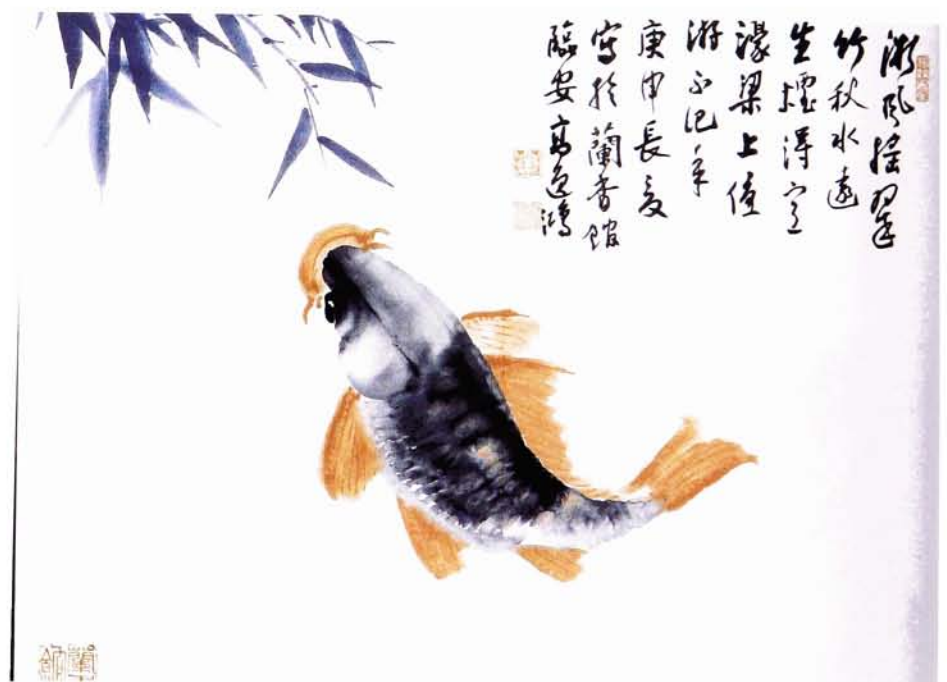 微風搖翠
竹秋水遠
生煙得意
濠梁上優
游不記年
庚申長夏
寫於蘭香館
臨安高逸鴻